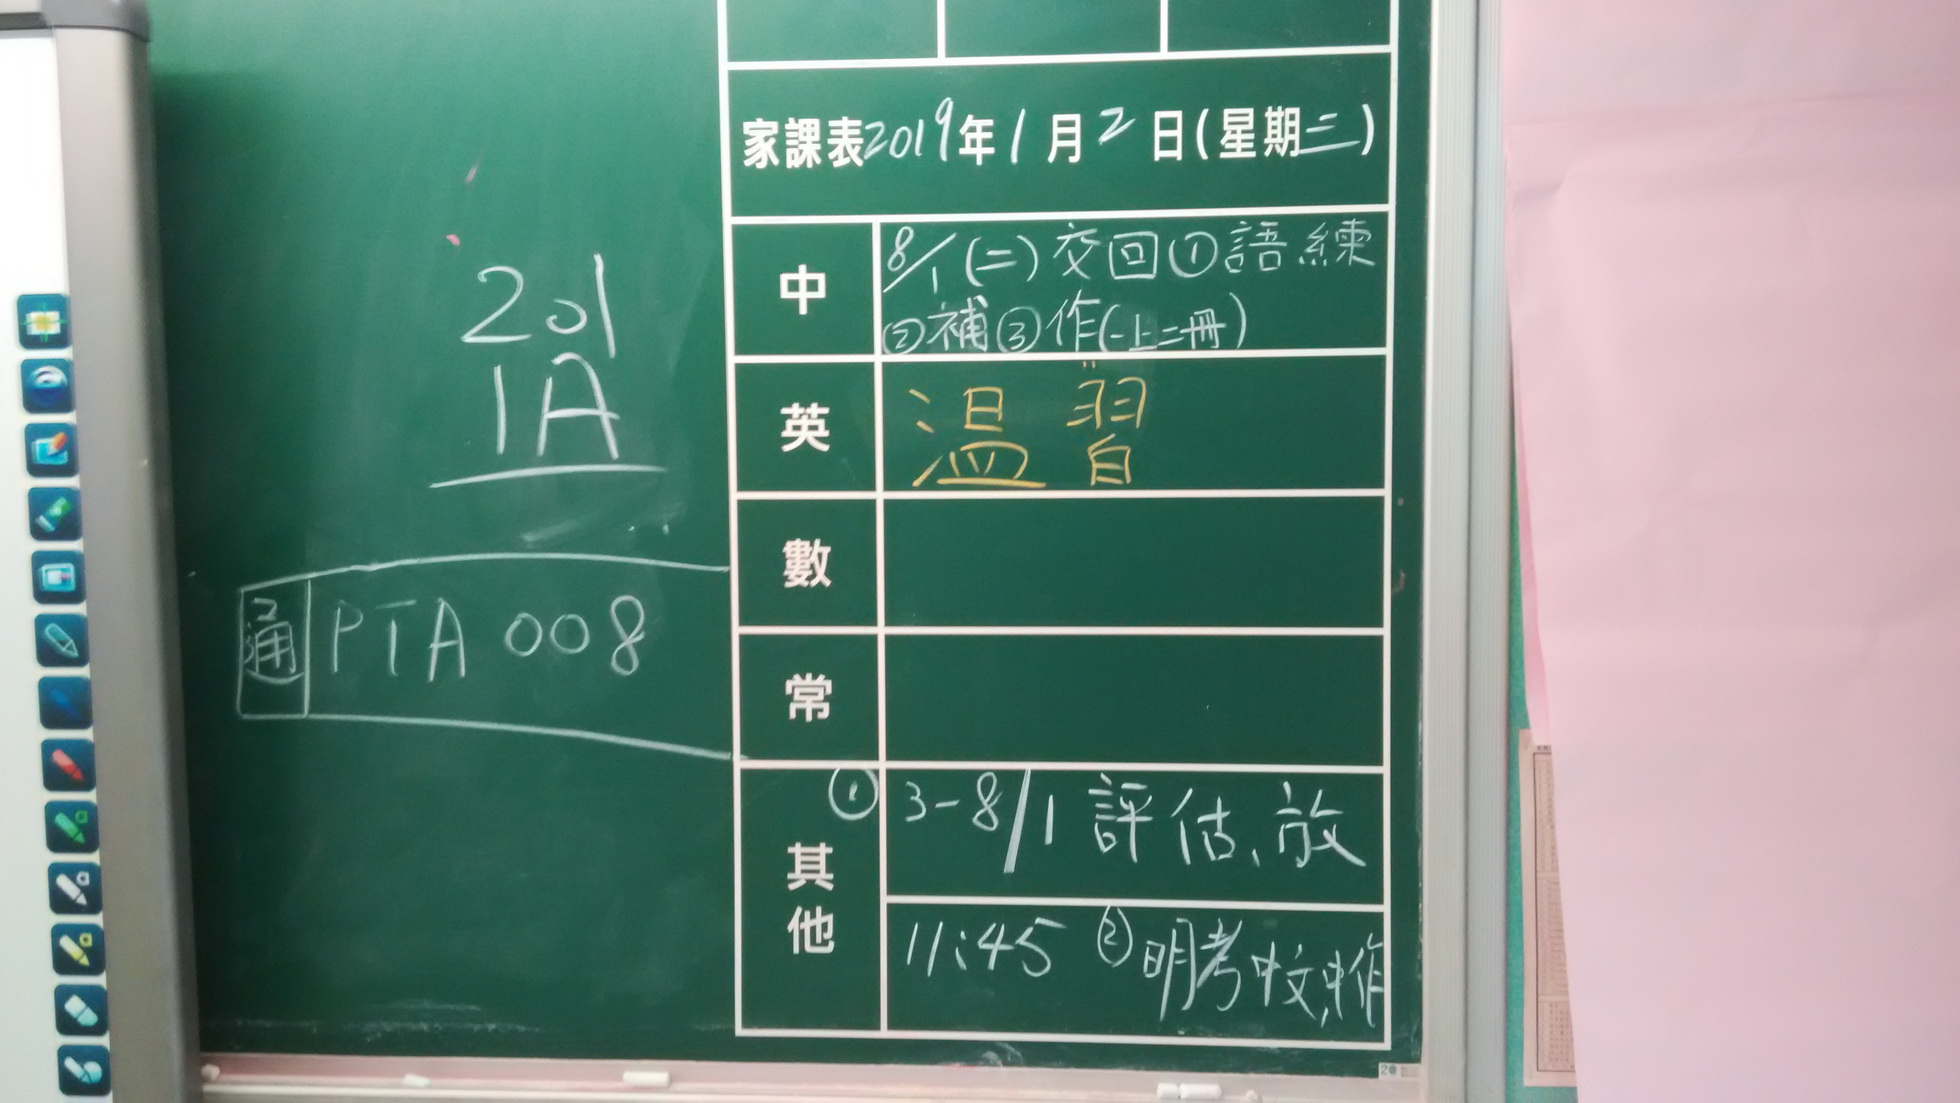 201
1A
通 PTA 008
家課表2019年1月2日(星期三)
中
8/1(二)交回①語練
②補③作(一上二冊)
英
溫習
數
常
其他
① 3-8/1 評估、放
11:45 ②明考中文,中作